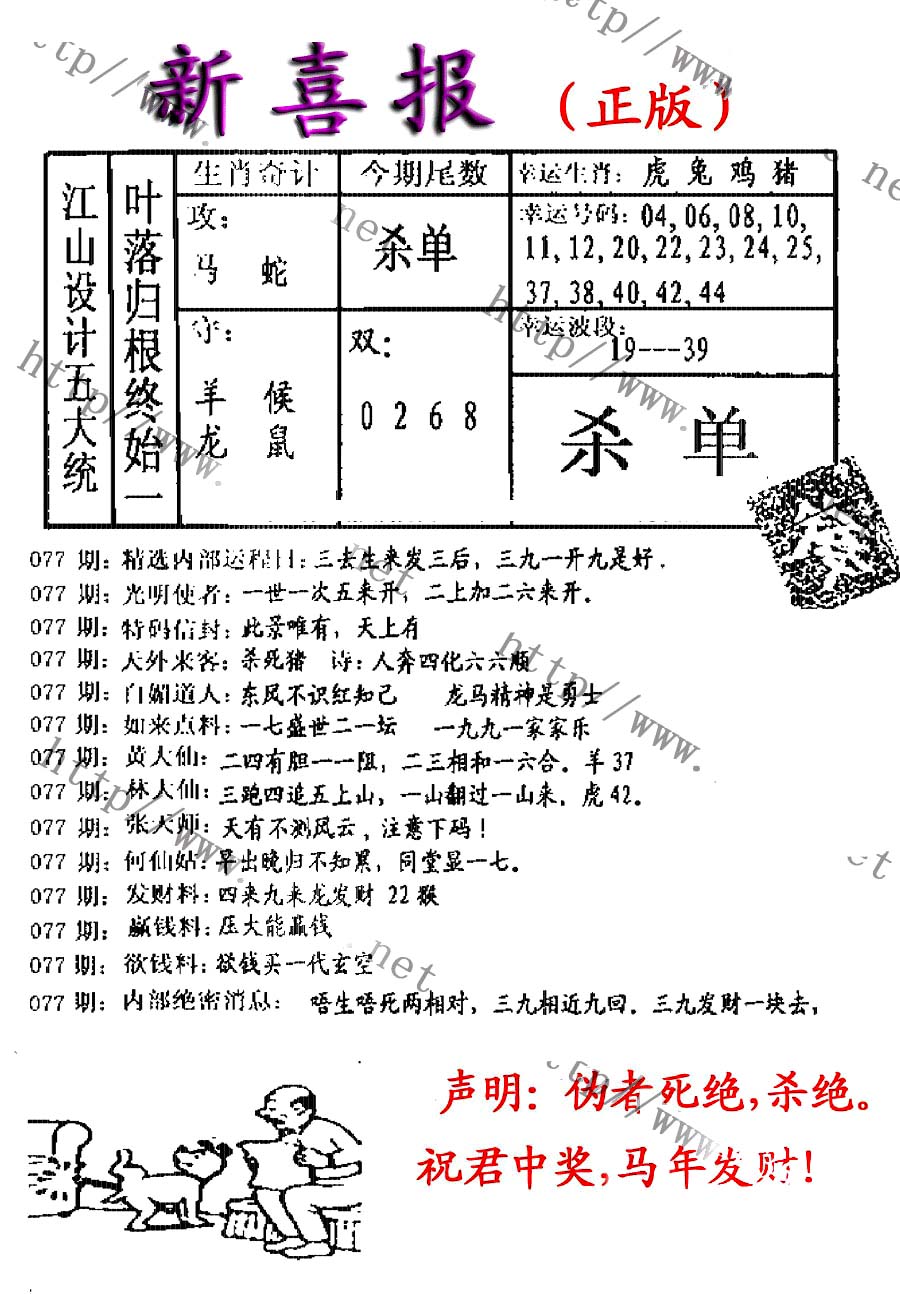 新喜报
(正版)
江山设计五大统
叶落归根终始一
生肖奇计
攻:
马 蛇
守:
羊 候
龙 鼠
今期尾数
杀单
双:
0 2 6 8
幸运生肖: 虎 兔 鸡 猪
幸运号码: 04,06,08,10,
11,12,20,22,23,24,25,
37,38,40,42,44
幸运波段:
19---39
杀 单
077 期: 精选内部运程日: 三去生来发三后, 三九一开九是好.
077 期: 光明使者: 一世一次五来开, 二上加二六来开.
077 期: 特码信封: 此景唯有, 天上有
077 期: 天外来客: 杀死猪 诗: 人奔四化六六顺
077 期: 白媚道人: 东风不识红知己 龙马精神是勇士
077 期: 如来点料: 一七盛世二一坛 一九九一家家乐
077 期: 黄大仙: 二四有胆一一阻, 二三相和一六合. 羊37
077 期: 林大仙: 三跑四追五上山, 一山翻过一山来, 虎42.
077 期: 张天师: 天有不测风云, 注意下码!
077 期: 何仙姑: 早出晚归不知累, 同堂显一七.
077 期: 发财料: 四来九来龙发财 22 猴
077 期: 赢钱料: 压大能赢钱
077 期: 欲钱料: 欲钱买一代玄空
077 期: 内部绝密消息: 唔生唔死两相对, 三九相近九回. 三九发财一块去,
声明: 伪者死绝,杀绝。
祝君中奖,马年发财!
http//www.
net